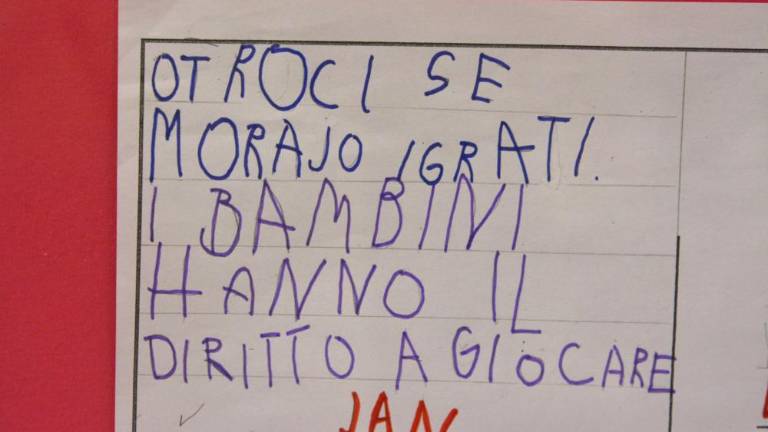 OTROCI SE
MORAJO IGRATI.
I BAMBINI
HANNO IL
DIRITTO A GIOCARE
JAN